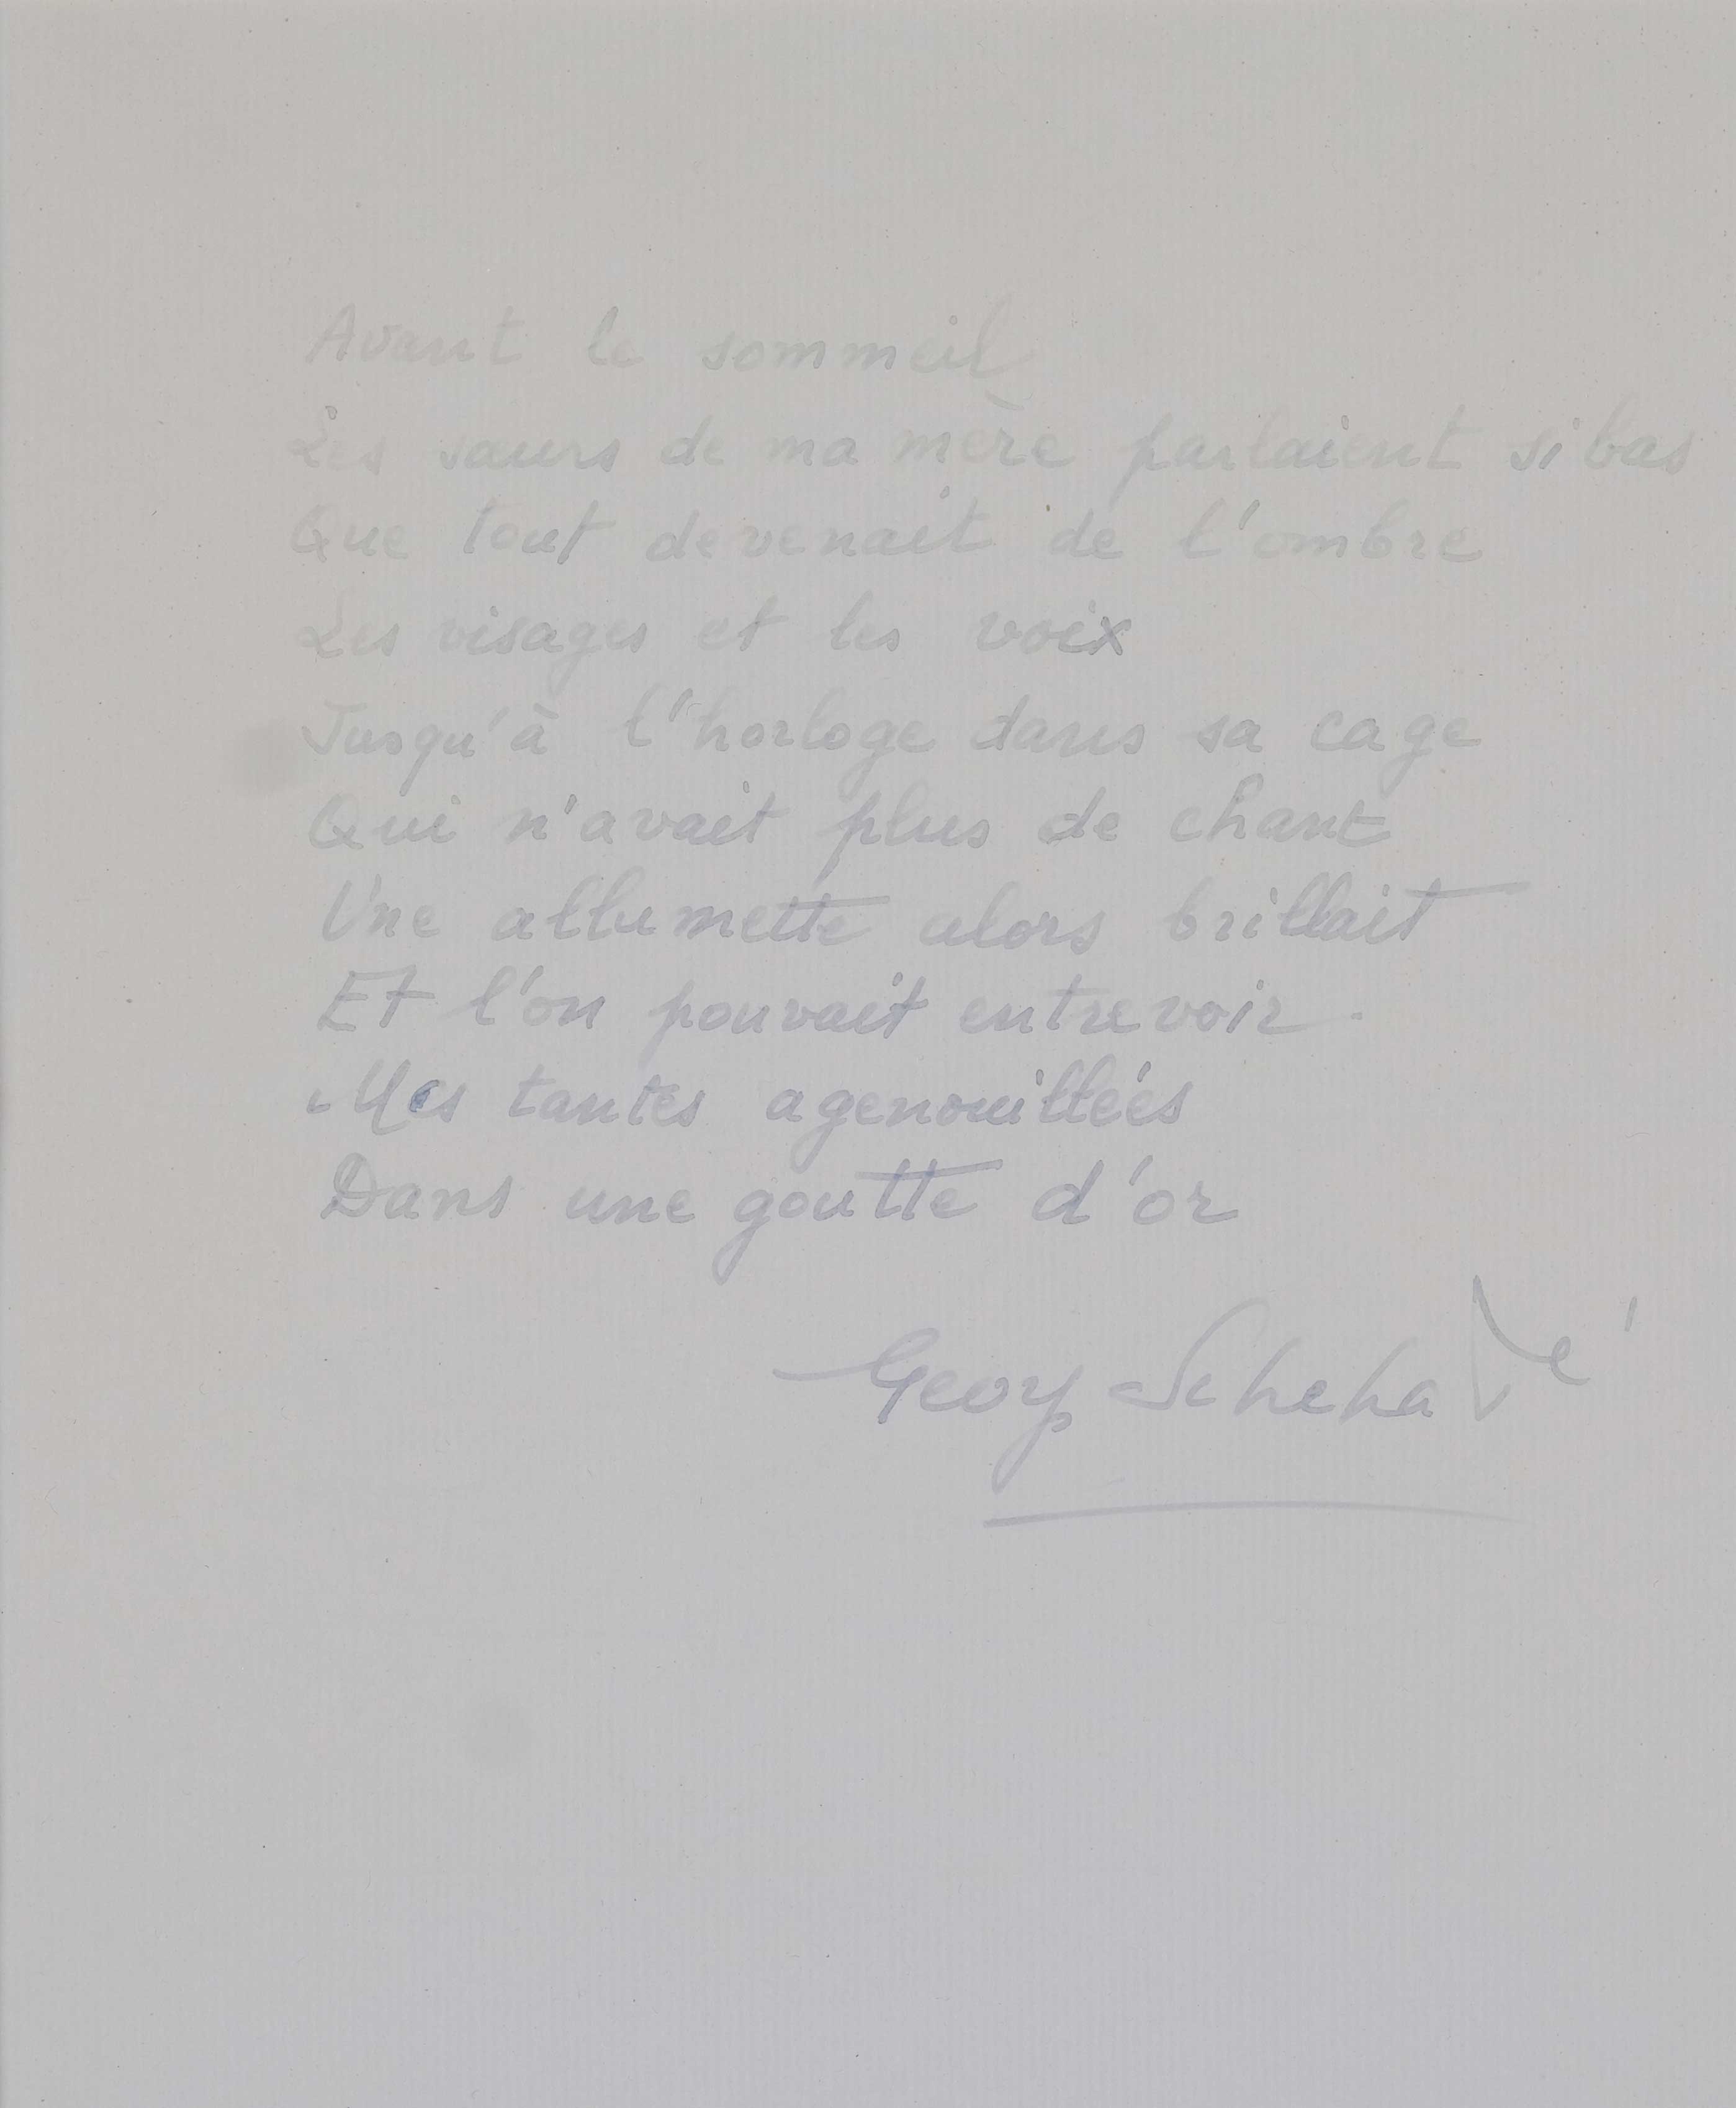 Avant le sommeil
Les sœurs de ma mère parlaient si bas
Que tout devenait de l'ombre
Les visages et les voix
Jusqu'à l'horloge dans sa cage
Qui n'avait plus de chant
Une allumette alors brillait
Et l'on pouvait entrevoir
Mes tantes agenouillées
Dans une goutte d'or
Georges Schehadé